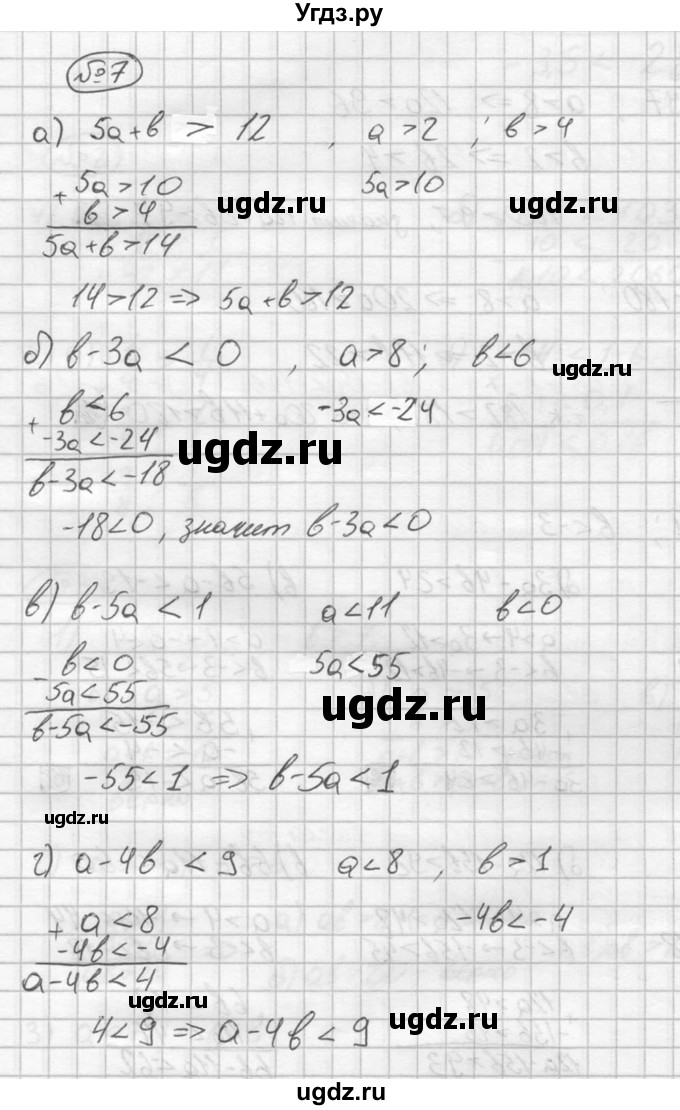 Угдз.ру
№7
а) 5a+b > 12 , a>2 ; b>4
+ 5a>10 5a>10
b>4
ugdz.ru ugdz.ru
5a+b>14
14>12 => 5a+b>12
б) b-3a < 0 , a>8; b<6
ugdz.ru
+ b<6 -3a<-24
-3a<-24
ugdz.ru
b-3a<-18
-18<0, значит b-3a<0
в) b-5a<1 a<11 b<0
- b<0 5a<55
5a<55
ugdz.ru
b-5a<-55
-55<1 => b-5a<1
ugdz.ru
г) a-4b < 9 a<8 , b>1
+ a<8 -4b<-4
-4b<-4
a-4b<4
ugdz.ru
4<9 => a-4b<9
ugdz.ru
ugdz.ru